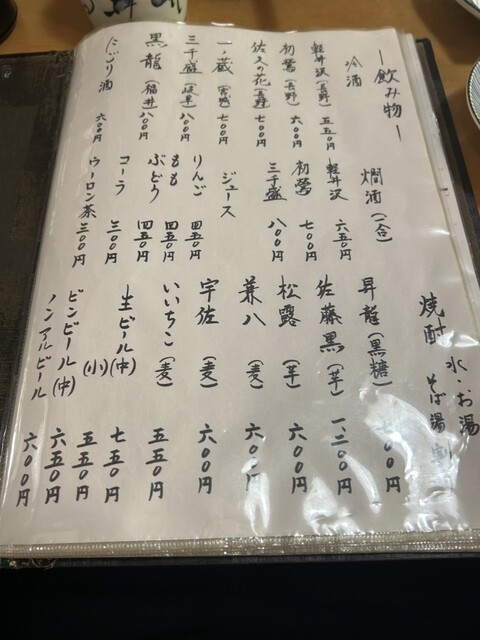 ―飲み物―
冷酒
軽井沢(長野) 五五〇円
初鶯(長野) 六〇〇円
佐久の花(長野) 七〇〇円
一ノ蔵(宮城) 七〇〇円
三千盛(岐阜) 八〇〇円
黒龍(福井) 八〇〇円
にごり酒 六〇〇円
燗酒(一合)
軽井沢 六五〇円
初鶯 七〇〇円
三千盛 八〇〇円
ジュース
りんご 四五〇円
もも 四五〇円
ぶどう 四五〇円
コーラ 三〇〇円
ウーロン茶 三〇〇円
焼酎 水・お湯
そば湯割
昇龍(黒糖) 七〇〇円
佐藤黒(芋) 一、二〇〇円
松露(芋) 六〇〇円
兼八(麦) 六〇〇円
宇佐(麦) 六〇〇円
いいちこ(麦) 五五〇円
生ビール(中) 七五〇円
(小) 五五〇円
ビンビール(中) 六五〇円
ノンアルビール 六〇〇円